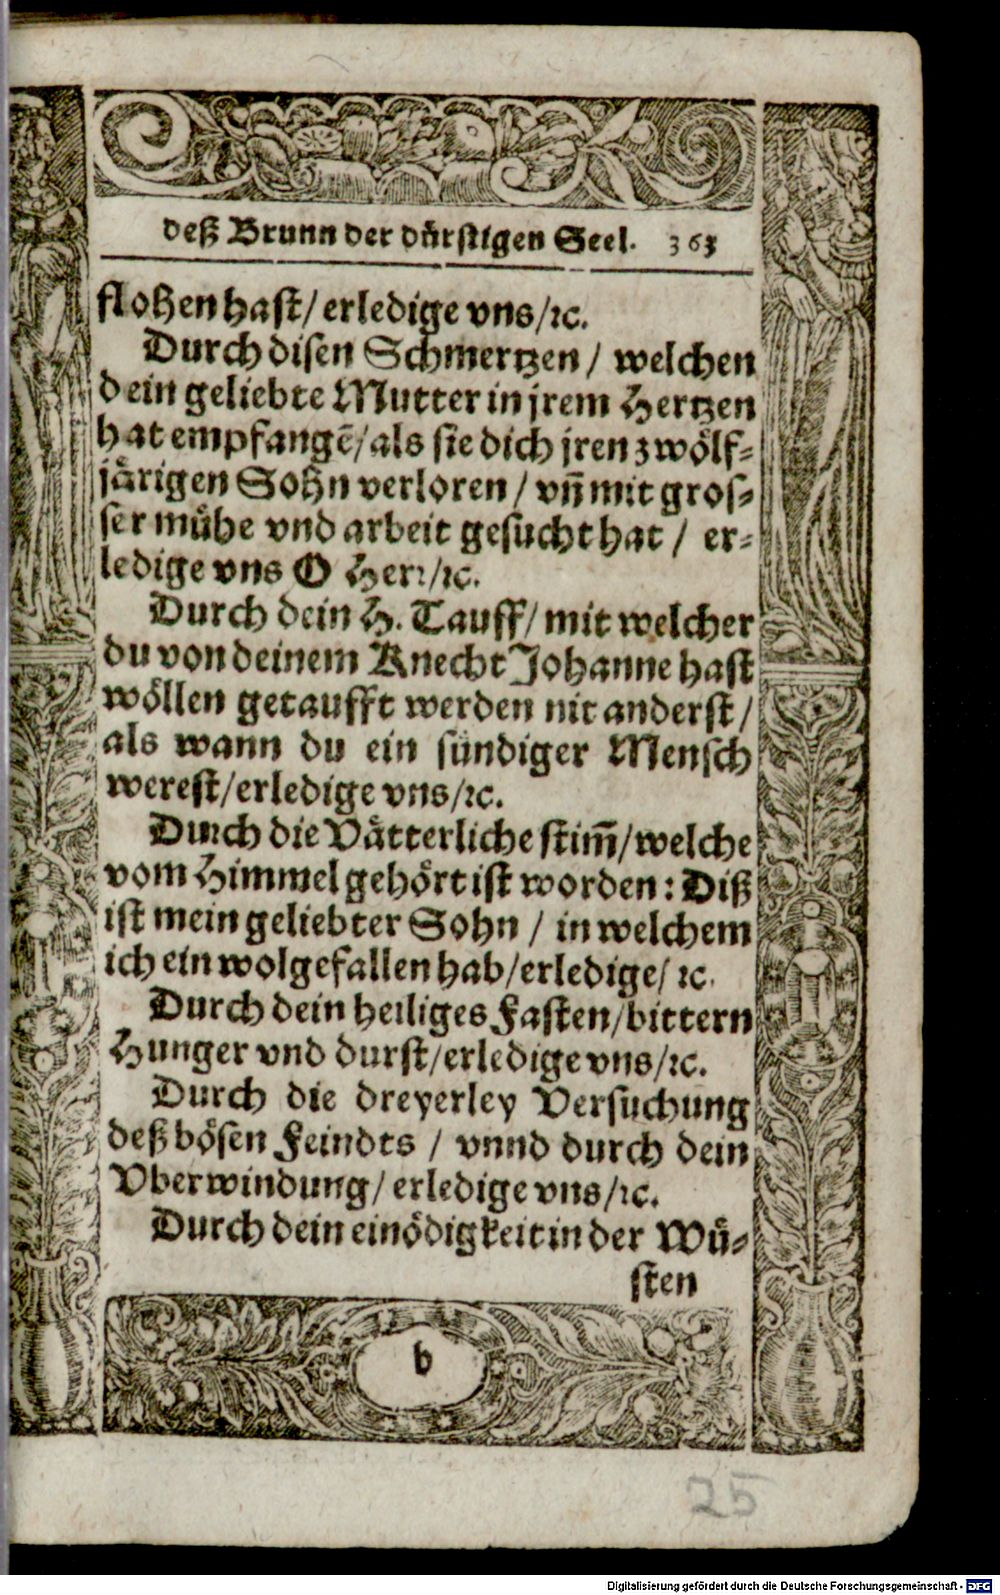 deß Brunn der dürstigen Seel. 363
flohen hast/ erledige vns/ꝛc.
Durch disen Schmertzen / welchen
dein geliebte Mutter in jrem Hertzen
hat empfangẽ/als sie dich jren zwölf-
järigen Sohn verloren / vñ mit gros-
ser mühe vnd arbeit gesucht hat / er-
ledige vns O Herꝛ/ꝛc.
Durch dein H. Tauff/ mit welcher
du von deinem Knecht Johanne hast
wöllen getaufft werden nit anderst /
als wann du ein sündiger Mensch
werest/erledige vns/ꝛc.
Durch die Vätterliche stim̃/welche
vom Himmel gehört ist worden: Diß
ist mein geliebter Sohn / in welchem
ich ein wolgefallen hab/erledige/ ꝛc.
Durch dein heiliges Fasten/bittern
Hunger vnd durst/erledige vns/ꝛc.
Durch die dreyerley Versuchung
deß bösen Feindts / vnnd durch dein
Vberwindung/ erledige vns/ꝛc.
Durch dein einödigkeit in der Wü-
sten
b
25
Digitalisierung gefördert durch die Deutsche Forschungsgemeinschaft - DFG